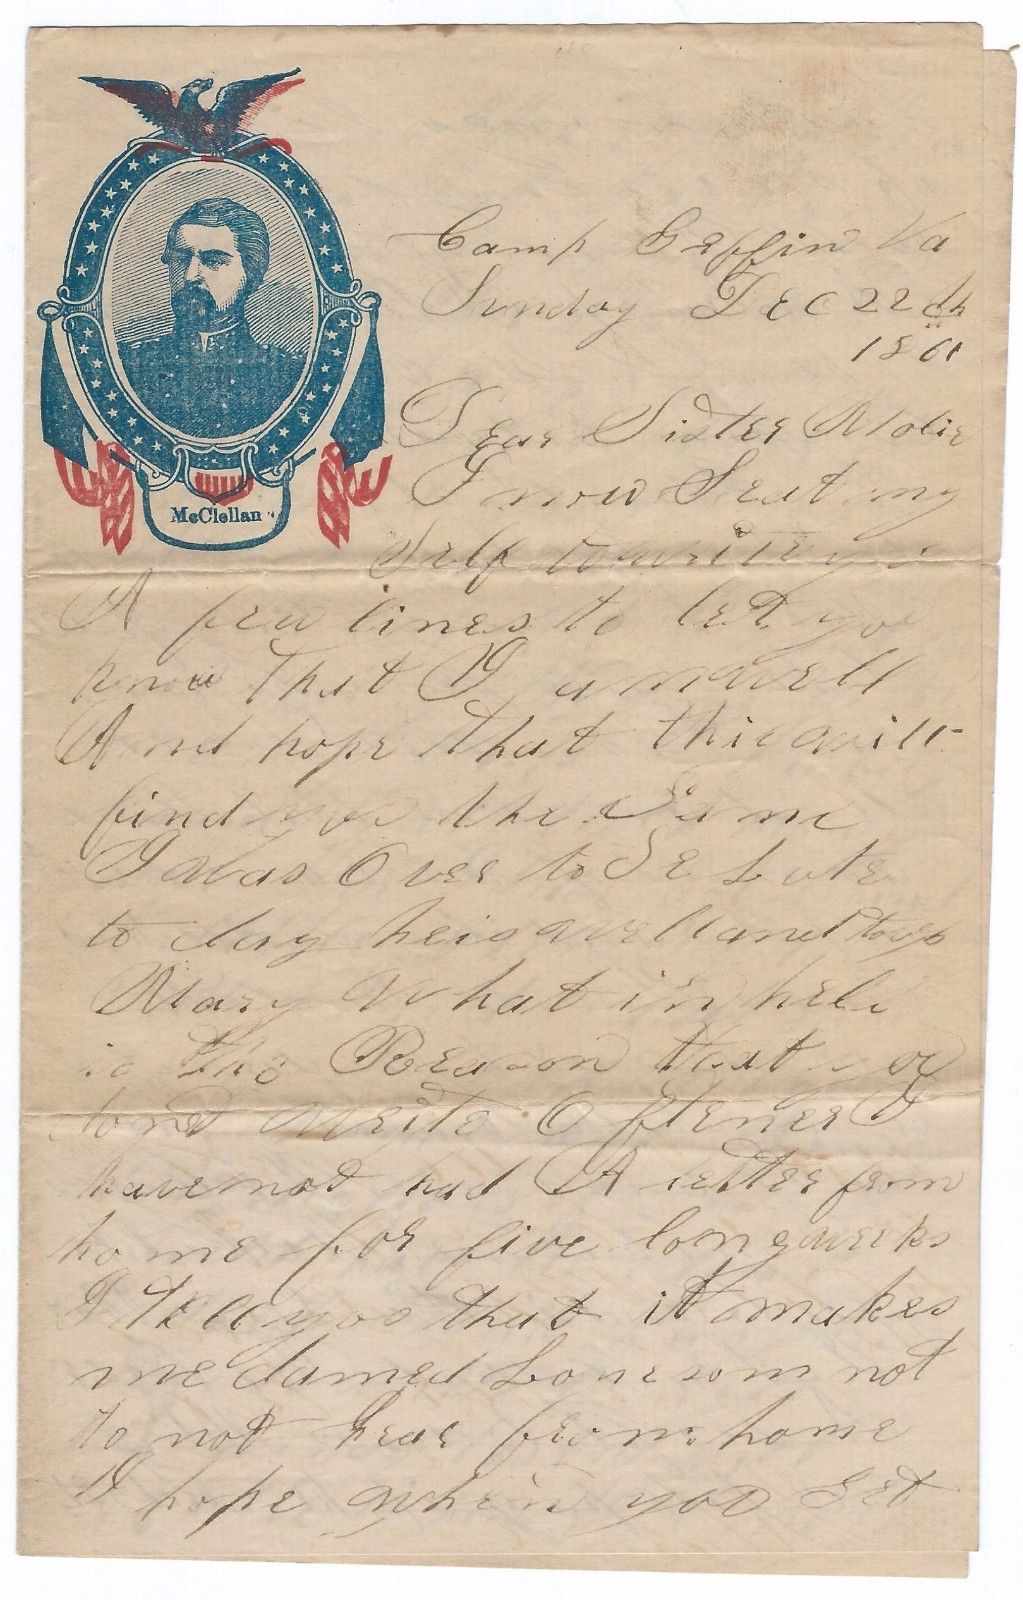 McClellan
Camp Griffin Va
Sunday Dec 22th
1861
Dear Sister Molie
I now Seat my
Self to write you
A few lines to let you
know that I am well
And hope that this will
find you the Same
I was Over to see Lute
to day he is well and
Mary What in hell
is the Reason that you
dont Write Oftener I
have not had A letter from
home for five long weeks
I Tell you that it makes
me damed Lonesom not
to not hear from home
I hope when you Get